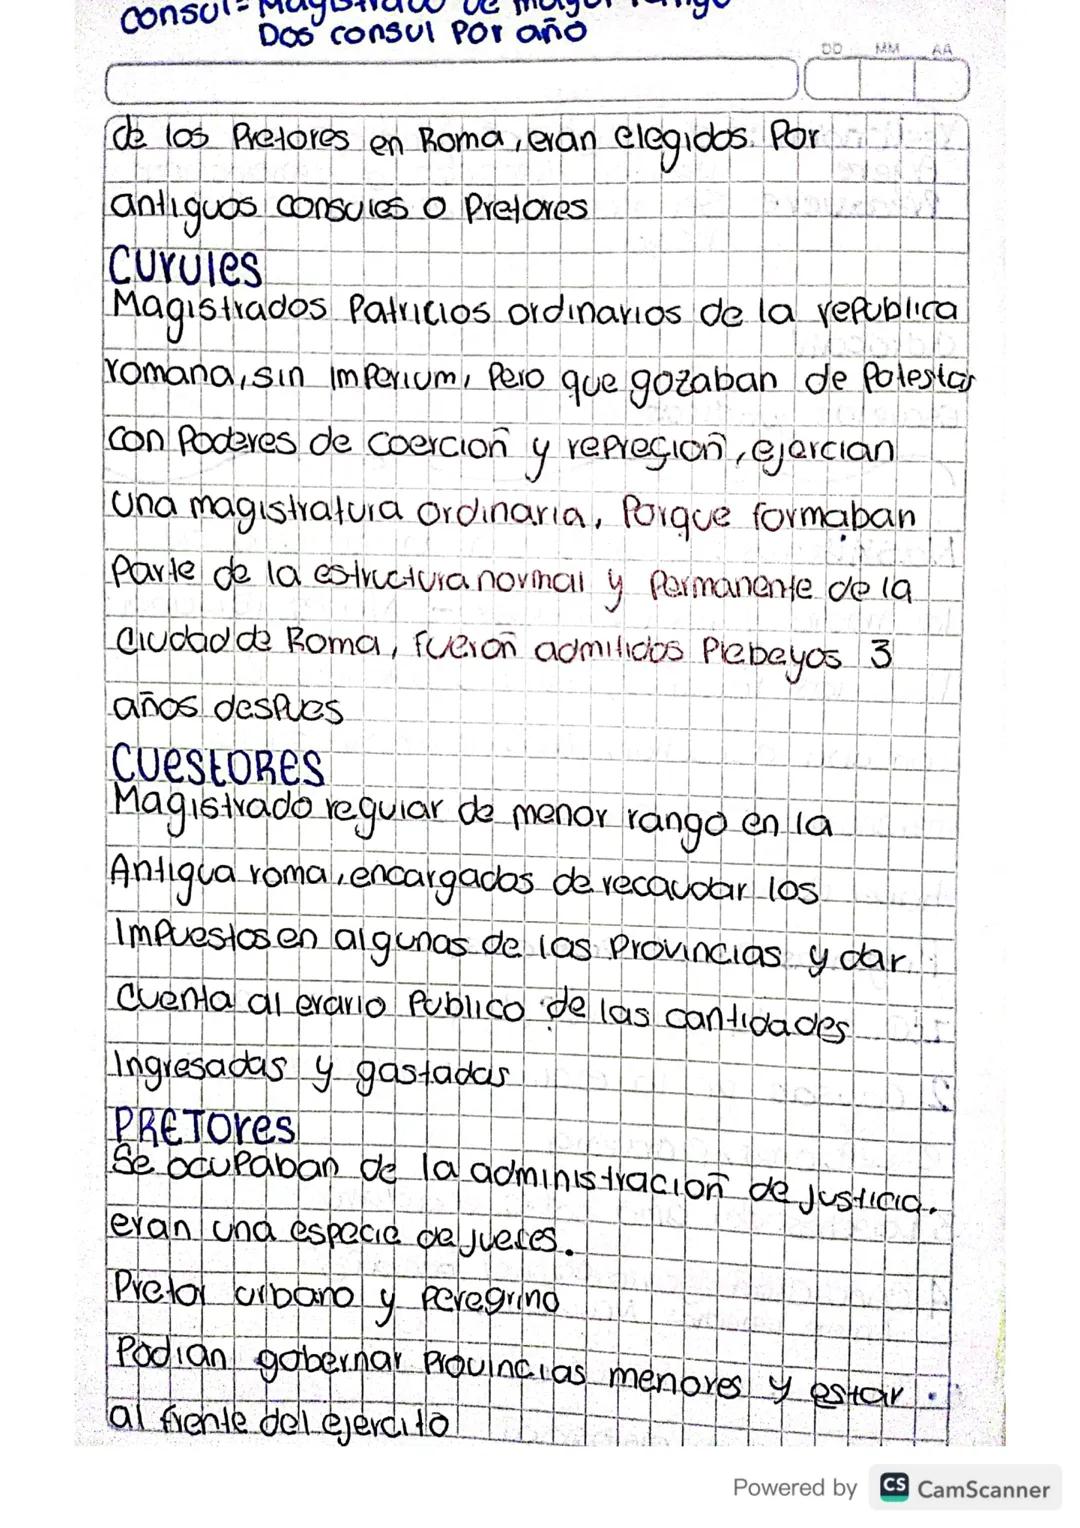 consul= Magistrado de mayor rango
Dos consul Por año
DD MM AA
de los Pretores en Roma, eran elegidos Por
antiguos consules o Pretores
CURULES
Magistrados Patricios ordinarios de la republica
romana, sin imperium, Pero que gozaban de Potestas
con Poderes de coercion y represion, ejercian
una magistratura ordinaria, Porque formaban
Parte de la estructura normal y Permanente de la
Ciudad de Roma, fueron admitidos Plebeyos 3
años desPues
CUESTORES
Magistrado regular de menor rango en la
Antigua roma, encargados de recaudar los
ImPuestos en algunas de las Provincias y dar
cuenta al erario Publico de las cantidades
Ingresadas y gastadas
PRETORES
Se ocuPaban de la administracion de justicia.
eran una especie de jueces.
Pretor urbano y Peregrino
Podian gobernar Provincias menores y estar
al frente del ejercito
Powered by CS CamScanner